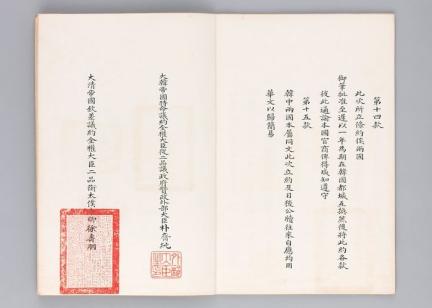 第十四款
此次所立條約俟兩國
御筆批准至遲以一年為期在韓國都城互換然後將此約各款
彼此通諭本國官商俾得咸知遵守
第十五款
韓中兩國本屬同文此次立約及日後公牘往來自應均用
華文以歸簡易
大韓帝國特命議約全權大臣從二品議政府贊政外部大臣朴齊純
大清帝國欽差議約全權大臣二品銜太僕卿徐壽朋